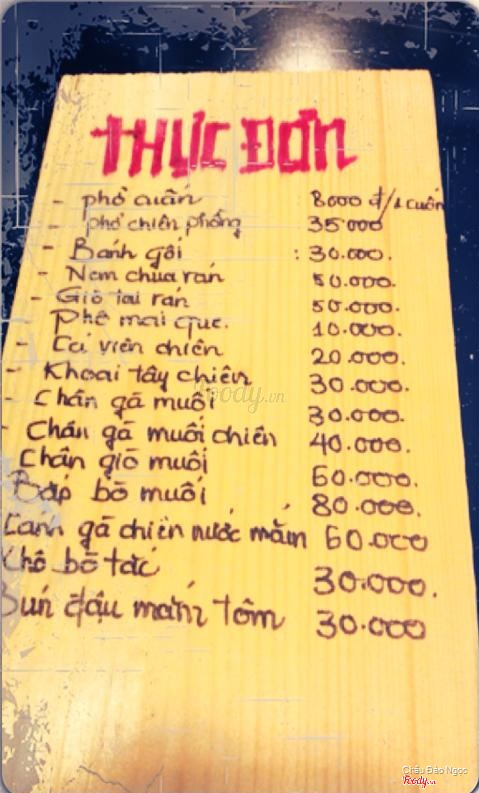 THỰC ĐƠN
- phở cuốn 8000 đ/1 cuốn
- phở chiên phồng 35000
- Bánh gối : 30.000.
- Nem chua rán 50.000.
- Giò tai rán 50.000.
- Phô mai que. 10.000.
- Cá viên chiên 20.000.
- Khoai tây chiên 30.000.
- Chân gà muối 30.000.
- Chân gà muối chiên 40.000.
Chân giò muối 60.000.
Bắp bò muối 80.000.
Cánh gà chiên nước mắm 60.000
Khô bò tắc 30.000.
Bún đậu mắm tôm 30.000
foody.vn
Châu Bảo Ngọc
foody.vn